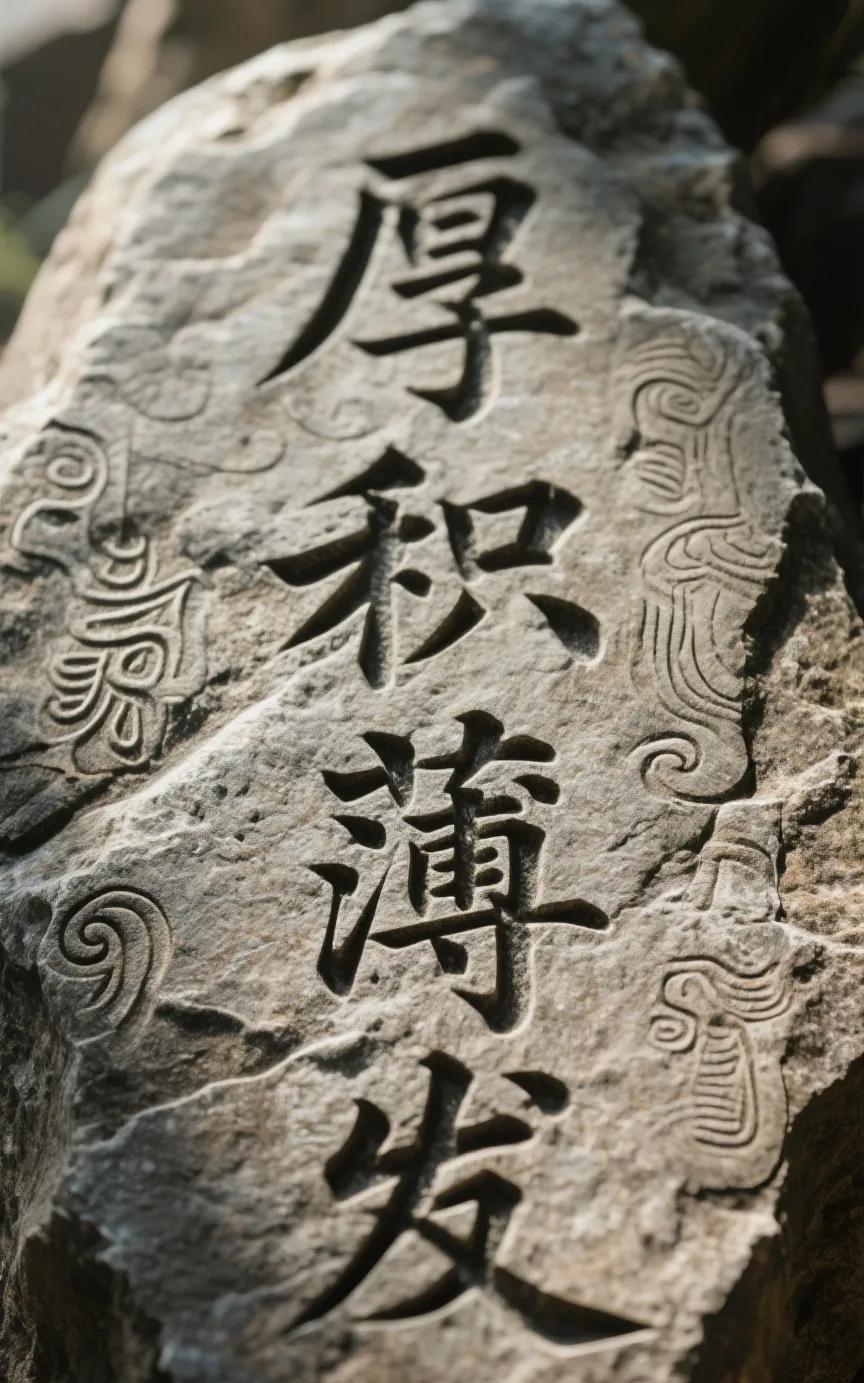 厚积薄发